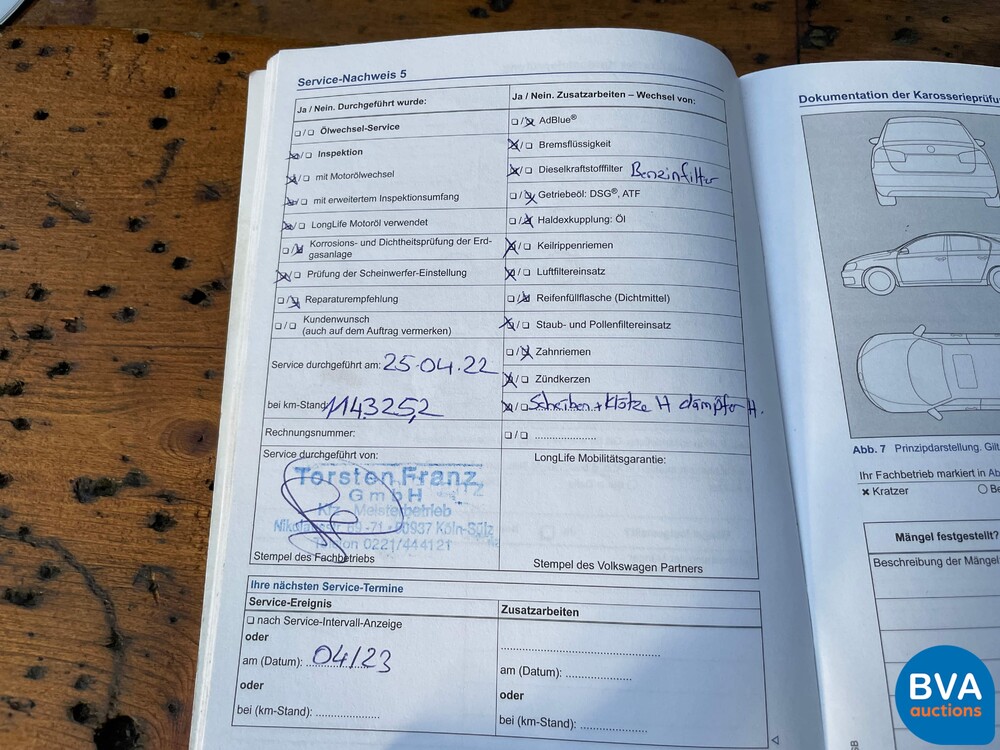 Service-Nachweis 5
Ja / Nein. Durchgeführt wurde:
☐/☐ Ölwechsel-Service
☒/☐ Inspektion
☒/☐ mit Motorölwechsel
☒/☐ mit erweitertem Inspektionsumfang
☒/☐ LongLife Motoröl verwendet
☐/☒ Korrosions- und Dichtheitsprüfung der Erd-
gasanlage
☒/☐ Prüfung der Scheinwerfer-Einstellung
☐/☒ Reparaturempfehlung
☐/☐ Kundenwunsch
(auch auf dem Auftrag vermerken)
Service durchgeführt am: 25.04.22
bei km-Stand
Rechnungsnummer:
Service durchgeführt von:
Torsten Franz
GmbH
Kfz - Meisterbetrieb
69-71 · 50937 Köln-Sülz
0221/444121
Stempel des Fachbetriebs
Ja / Nein. Zusatzarbeiten – Wechsel von:
☐/☒ AdBlue®
☒/☐ Bremsflüssigkeit
☒/☐ Dieselkraftstofffilter Benzinfilter
☐/☒ Getriebeöl: DSG®, ATF
☐/☒ Haldexkupplung: Öl
☒/☐ Keilrippenriemen
☒/☐ Luftfiltereinsatz
☐/☒ Reifenfüllflasche (Dichtmittel)
☒/☐ Staub- und Pollenfiltereinsatz
☐/☒ Zahnriemen
☒/☐ Zündkerzen
☒/☐ Scheiben + Klötze H dämpfer H.
☐/☐ .....................
LongLife Mobilitätsgarantie:
Stempel des Volkswagen Partners
Ihre nächsten Service-Termine
Service-Ereignis
☐ nach Service-Intervall-Anzeige
oder
am (Datum): 04/23
oder
bei (km-Stand): ....................
Zusatzarbeiten
am (Datum): ....................
oder
bei (km-Stand): ....................
Dokumentation der Karosserieprüfu
Abb. 7 Prinzipdarstellung. Gilt
Ihr Fachbetrieb markiert in Ab
✖ Kratzer
○ Be
Mängel festgestellt?
Beschreibung der Mängel
BVA
auctions